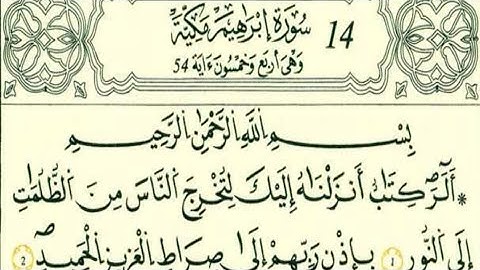 سُورَةُ إِبْرَٰهِيمَ مَكِّيَّةٌ 14
وَهْىَ أَرْبَعٌ وَخَمْسُونَ ءَايَةً 54
بِسْمِ اللَّهِ الرَّحْمَٰنِ الرَّحِيمِ
* أَلَٓرۖ كِتَٰبٌ أَنزَلْنَٰهُ إِلَيْكَ لِتُخْرِجَ النَّاسَ مِنَ الظُّلُمَٰتِ
إِلَى النُّورِ 1 بِإِذْنِ رَبِّهِمْ إِلَىٰ صِرَٰطِ الْعَزِيزِ الْحَمِيدِ 2